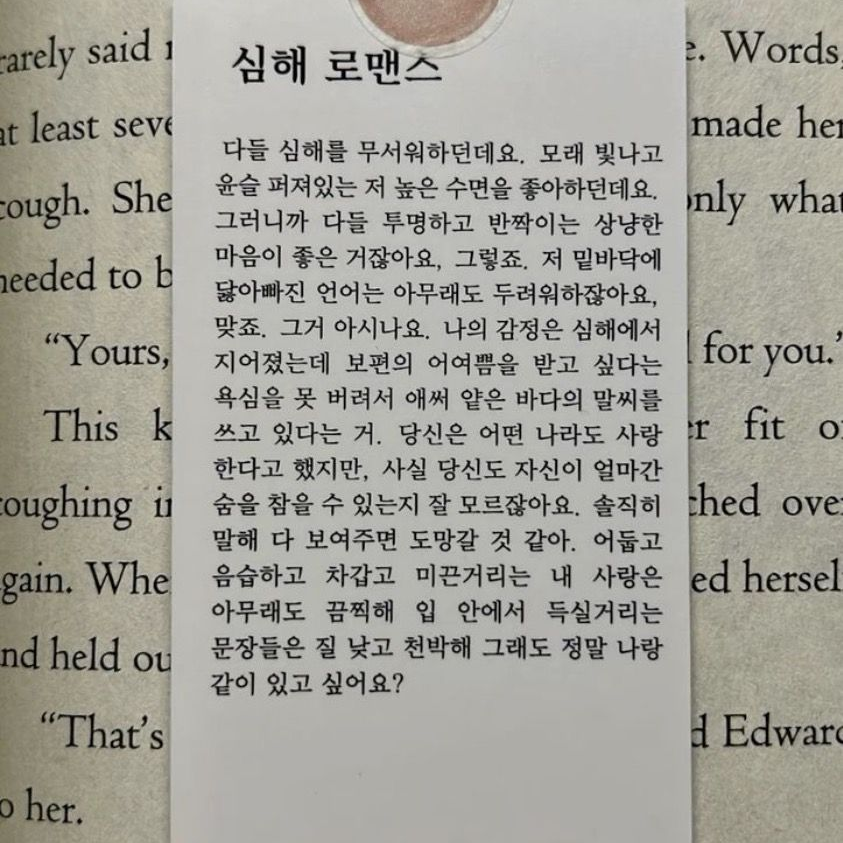 심해 로맨스
다들 심해를 무서워하던데요. 모래 빛나고
윤슬 퍼져있는 저 높은 수면을 좋아하던데요.
그러니까 다들 투명하고 반짝이는 상냥한
마음이 좋은 거잖아요, 그렇죠. 저 밑바닥에
닳아빠진 언어는 아무래도 두려워하잖아요,
맞죠. 그거 아시나요. 나의 감정은 심해에서
지어졌는데 보편의 어여쁨을 받고 싶다는
욕심을 못 버려서 애써 얕은 바다의 말씨를
쓰고 있다는 거. 당신은 어떤 나라도 사랑
한다고 했지만, 사실 당신도 자신이 얼마간
숨을 참을 수 있는지 잘 모르잖아요. 솔직히
말해 다 보여주면 도망갈 것 같아. 어둡고
음습하고 차갑고 미끈거리는 내 사랑은
아무래도 끔찍해 입 안에서 득실거리는
문장들은 질 낮고 천박해 그래도 정말 나랑
같이 있고 싶어요?
rarely said
. Words,
at least
made her
cough. She
only what
needed to
“Yours,
for you.”
This
fit
coughing
over
again.
and held
“That’s
Edward
to her.